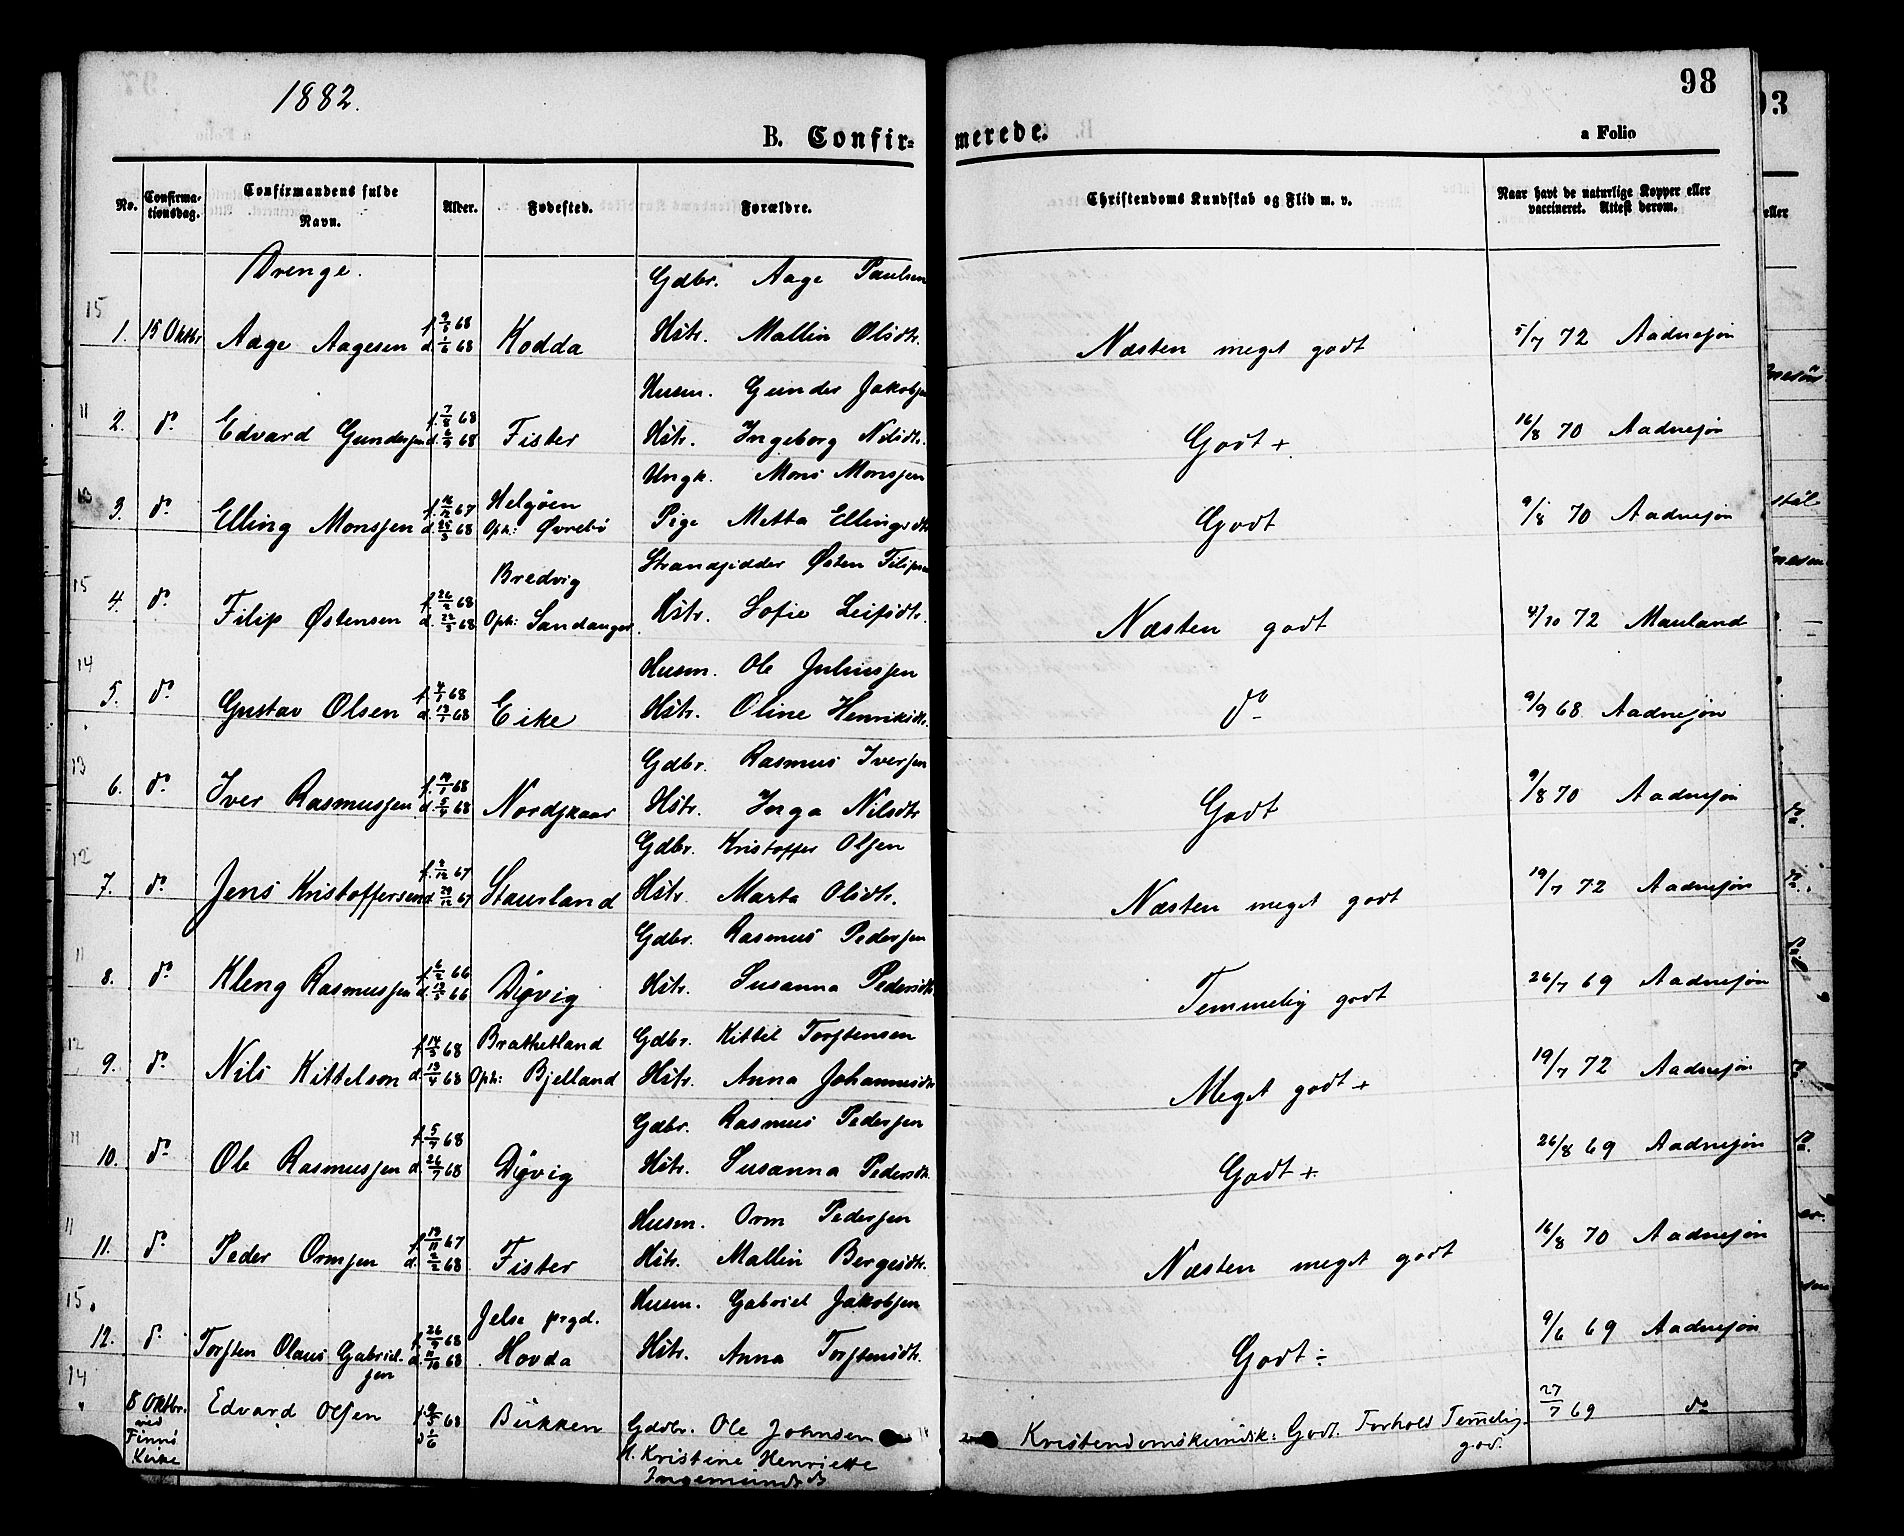 1882.
98
B. Confir-
merede.
a Folio
No.
Confirma-
tionsdag.
Confirmandens fulde
Navn.
Alder.
Fødested.
Forældre.
Christendoms Kundskab og Flid m. v.
Naar havt de naturlige Kopper eller
vaccineret. Attest derom.
Drenge.
15
1. 15 Oktbr Aage Aagesen f. 9/5 68 d. 1/6 68 Kodda
Gdbr. Aage Paulsen
Hstr. Mallin Olsdtr.
Næsten meget godt
5/7 72 Aadnesjøn
11
2. do Edvard Gundersen f. 7/8 68 d. 6/9 68 Fister
Husm. Gunder Jakobsen
Hstr. Ingeborg Nilsdtr.
Godt +
16/8 70 Aadnesjøn
3. do Elling Monssen f. 16/12 67 d. 25/3 68 Helgøen
Oph: Øvrebø
Ungk. Mons Monssen
Pige Metta Ellingsdtr
Godt
9/8 70 Aadnesjøn
15
4. do Filip Østensen f. 26/2 68 d. 22/3 68 Bredvig
Oph: Sandanger
Strandsidder Østen Filipsen
Hstr. Sofie Leifsdtr.
Næsten godt
4/10 72 Mauland
14
5. do Gustav Olsen f. 4/1 68 d. 19/1 68 Eike
Husm. Ole Juliussen
Hstr. Oline Henriksdtr.
do
9/9 68 Aadnesjøn
13
6. do Iver Rasmussen f. 19/1 68 d. 5/4 68 Nordskaar
Gdbr. Rasmus Iversen
Hstr. Inga Nilsdtr
Godt
9/8 70 Aadnesjøn
12
7. do Jens Kristoffersen f. 2/12 67 d. 29/12 67 Staurland
Gdbr. Kristoffer Olsen
Hstr. Marta Olsdtr.
Næsten meget godt
19/7 72 Aadnesjøn
11
8. do Kleng Rasmussen f. 6/2 66 d. 13/5 66 Døvig
Gdbr. Rasmus Pedersen
Hstr. Susanna Pedersdtr
Temmelig godt
26/7 69 Aadnesjøn
12
9. do Nils Kittelson f. 14/3 68 d. 13/4 68 Brathetland
Oph: Bjelland
Gdbr. Kittel Torstensen
Hstr. Anna Johannesdtr
Meget godt +
19/7 72 Aadnesjøn
11
10. do Ole Rasmussen f. 5/7 68 d. 26/7 68 Døvig
Gdbr. Rasmus Pedersen
Hstr. Susanna Pedersdtr.
Godt +
26/8 69 Aadnesjøn
11
11. do Peder Ormsen f. 13/11 67 d. 2/2 68 Fister
Husm. Orm Pedersen
Hstr. Mallin Bergesdtr.
Næsten meget godt
16/8 70 Aadnesjøn
15
12. do Torsten Olaus Gabriel-
sen f. 26/9 68 d. 11/10 68 Jelse prgd.
Hovda
Husm. Gabriel Jakobsen
Hstr. Anna Torstensdtr.
Godt ÷
9/6 69 Aadnesjøn
14
8 Oktbr.
ved
Finnö
Kirke
Edvard Olsen f. 9/5 68 d 1/6 Bukken
Gdbr. Ole Johnsen
H. Kristine Henriette
Ingemundsd
Kristendomskundsk: Godt. Forhold Temelig
god.
27/7 69 do